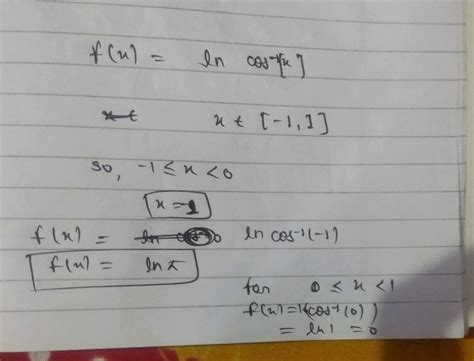 f(x) = ln cos⁻¹[x]
x ∈ [-1, 1]
so, -1 ≤ x < 0
x = -1
f(x) = ln cos⁻¹(-1)
f(x) = ln π
for 0 ≤ x < 1
f(x) = ln(cos⁻¹(0))
= ln 1 = 0